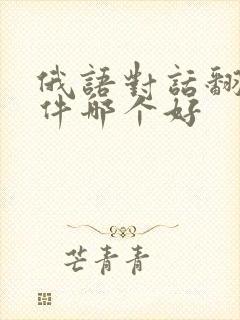 俄語對話翻
件哪个好
芒青青